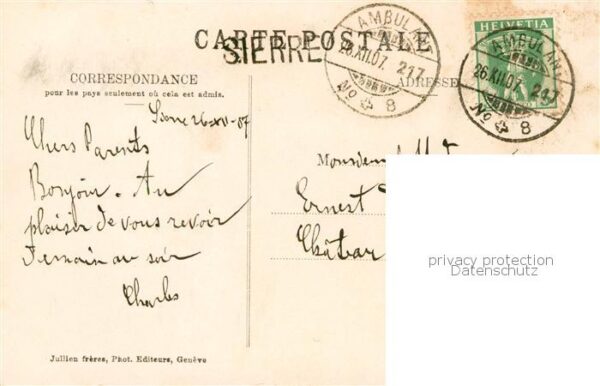 CARTE POSTALE
SIERRE
AMBULANT
26.XII.07. 217
No 8
HELVETIA
AMBULANT
26.XII.07. 217
No 8
CORRESPONDANCE
pour les pays seulement où cela est admis.
ADRESSE
Sierre 26-XII-07
Chers Parents
Bonjour. Au
plaisir de vous revoir
Demain au soir
Charles
Monsieur
Ernest
Châtea
privacy protection
Datenschutz
Jullien frères, Phot. Editeurs, Genève